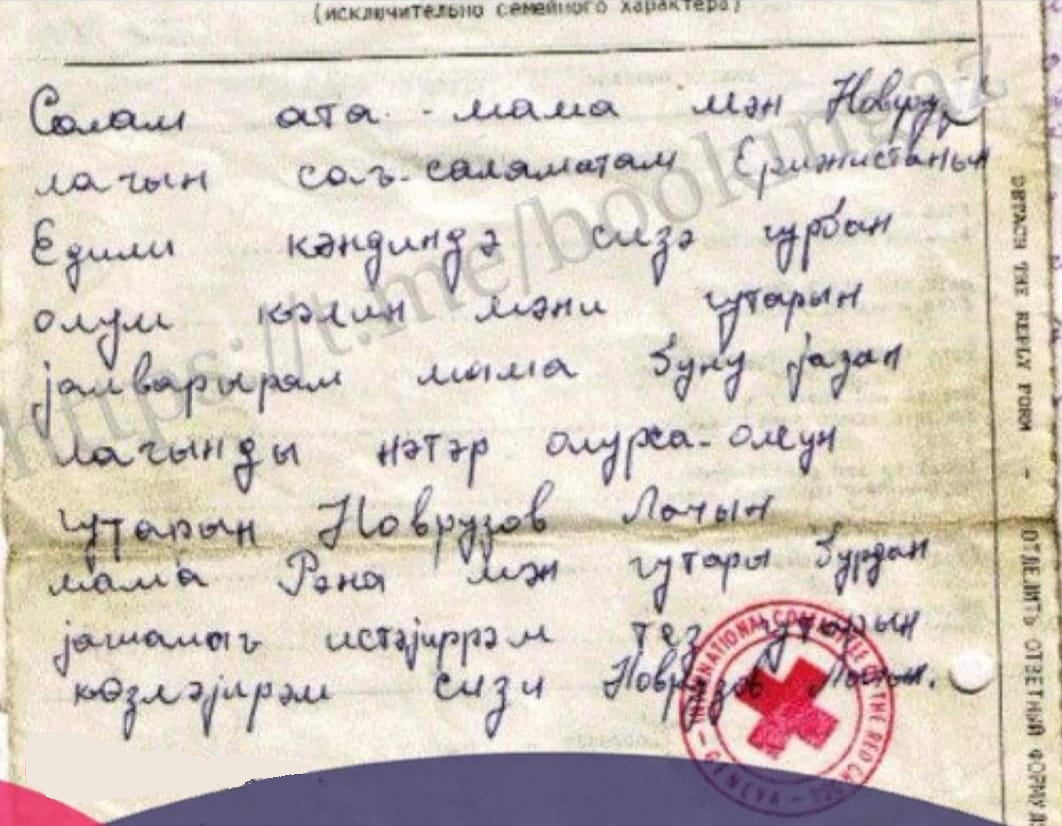 (исключительно семейного характера)
Салам ата - мама мән Новруз
лачын сағ-саламатам Ермәнистанын
Едили кәндиндә сизә гурбан
олум кәлин мәни гутарын
јалварырам мама буну јазан
лачынды нәтәр олурса-олсун
гутарын Новрузов Лачын
мама Рәна мән гутары бурдан
јашамағ истәјиррәм тез гутарын
көзләјирәм сизи Новрузов Лачын.
DETACH THE REPLY FORM - ОТДЕЛИТЬ ОТВЕТНЫЙ ФОРМУЛЯ
INTERNATIONAL COMMITTEE OF THE RED
GENEVA
https://t.me/bookingaz